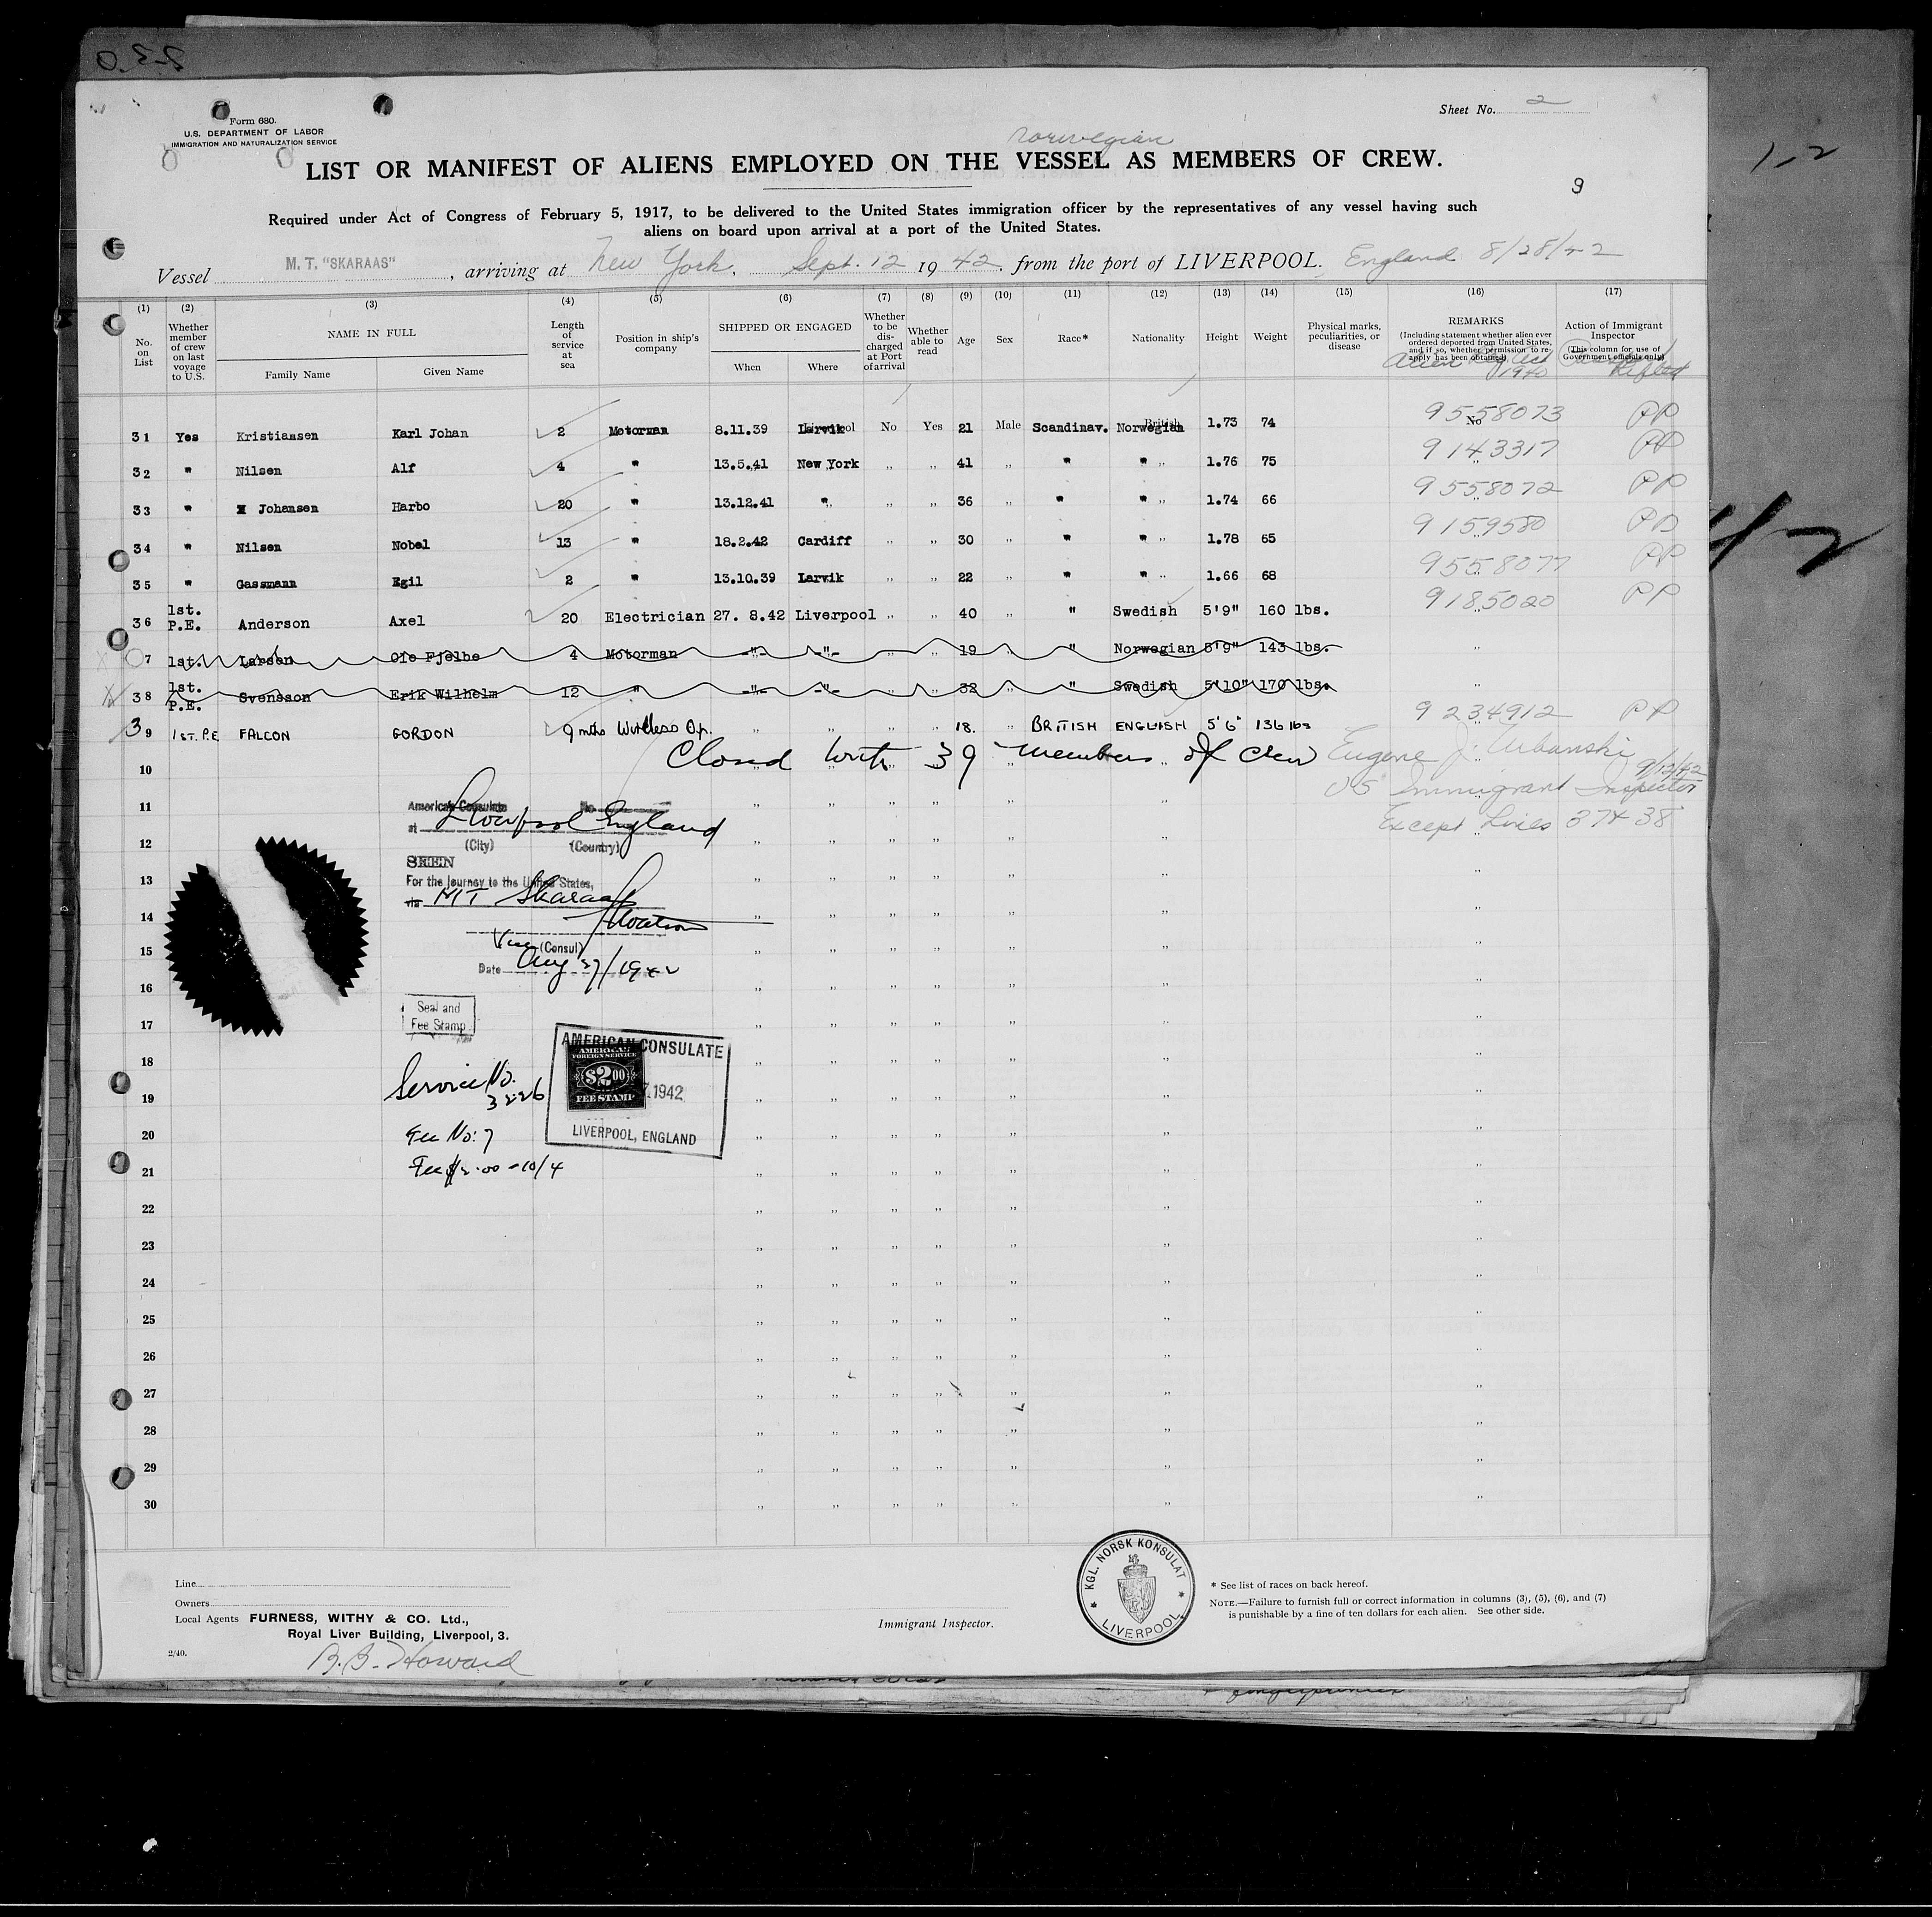 Form 680.
U.S. DEPARTMENT OF LABOR
IMMIGRATION AND NATURALIZATION SERVICE
Sheet No. 2
Norwegian
LIST OR MANIFEST OF ALIENS EMPLOYED ON THE VESSEL AS MEMBERS OF CREW.
9
1-2
Required under Act of Congress of February 5, 1917, to be delivered to the United States immigration officer by the representatives of any vessel having such
aliens on board upon arrival at a port of the United States.
Vessel M. T. "SKARAAS", arriving at New York, Sept. 12 1942, from the port of LIVERPOOL. England 8/28/42
(1) (2) (3) (4) (5) (6) (7) (8) (9) (10) (11) (12) (13) (14) (15) (16) (17)
No. on List
Whether member of crew on last voyage to U.S.
NAME IN FULL
Family Name Given Name
Length of service at sea
Position in ship's company
SHIPPED OR ENGAGED
When Where
Whether to be discharged at Port of arrival
Whether able to read
Age Sex Race* Nationality Height Weight
Physical marks, peculiarities, or disease
REMARKS
(Including statement whether alien ever ordered deported from United States, and if so, whether permission to reapply has been obtained)
Alien Reg. Act 1940
Action of Immigrant Inspector
(This column for use of Government officials only)
31 Yes Kristiansen Karl Johan 2 Motorman 8.11.39 Larvik No Yes 21 Male Scandinav. Norwegian 1.73 74 No 9558073 PP
32 " Nilsen Alf 4 " 13.5.41 New York " " 41 " " " " 1.76 75 9143317 PP
33 " Johansen Harbo 20 " 13.12.41 " " " 36 " " " " 1.74 66 9558072 PP
34 " Nilsen Nobel 13 " 18.2.42 Cardiff " " 30 " " " " 1.78 65 9159580 PP
35 " Gassmann Egil 2 " 13.10.39 Larvik " " 22 " " " " 1.66 68 9558077 PP
36 1st. P.E. Anderson Axel 20 Electrician 27. 8.42 Liverpool " " 40 " " Swedish 5'9" 160 lbs. 9185020 PP
7 1st. Larsen Ole Fjelbe 4 Motorman -"- -"- " " 19 " " Norwegian 5'9" 143 lbs. "
38 1st. P.E. Svensson Erik Wilhelm 12 " -"- -"- " " 32 " " Swedish 5'10" 170 lbs. "
39 1ST. P.E FALCON GORDON 9 mths Wireless Op. " " " " 18. " BRITISH ENGLISH 5'6" 136 lbs 9234912 PP
Closed with 39 members of crew Eugene J. Urbanski
9/12/42
US Immigrant Inspector
Except Lines 37 & 38
10
11
12
13
14
15
16
17
18
19
20
21
22
23
24
25
26
27
28
29
30
American Consulate No.
at Liverpool England
(City) (Country)
SEEN
For the journey to the United States,
via MT Skaraas
Vice (Consul)
Date Aug 27/1942
Seal and
Fee Stamp
AMERICAN CONSULATE
AMERICAN
FOREIGN SERVICE
$2.00
FEE STAMP
7.1942
LIVERPOOL, ENGLAND
Service No.
3226
Fee No: 7
Fee $2.00 = 10/4
Line
Owners
Local Agents FURNESS, WITHY & CO. Ltd.,
Royal Liver Building, Liverpool, 3.
2/40.
B.B. Howard
Immigrant Inspector.
KGL. NORSK KONSULAT
LIVERPOOL
* See list of races on back hereof.
NOTE.—Failure to furnish full or correct information in columns (3), (5), (6), and (7)
is punishable by a fine of ten dollars for each alien. See other side.